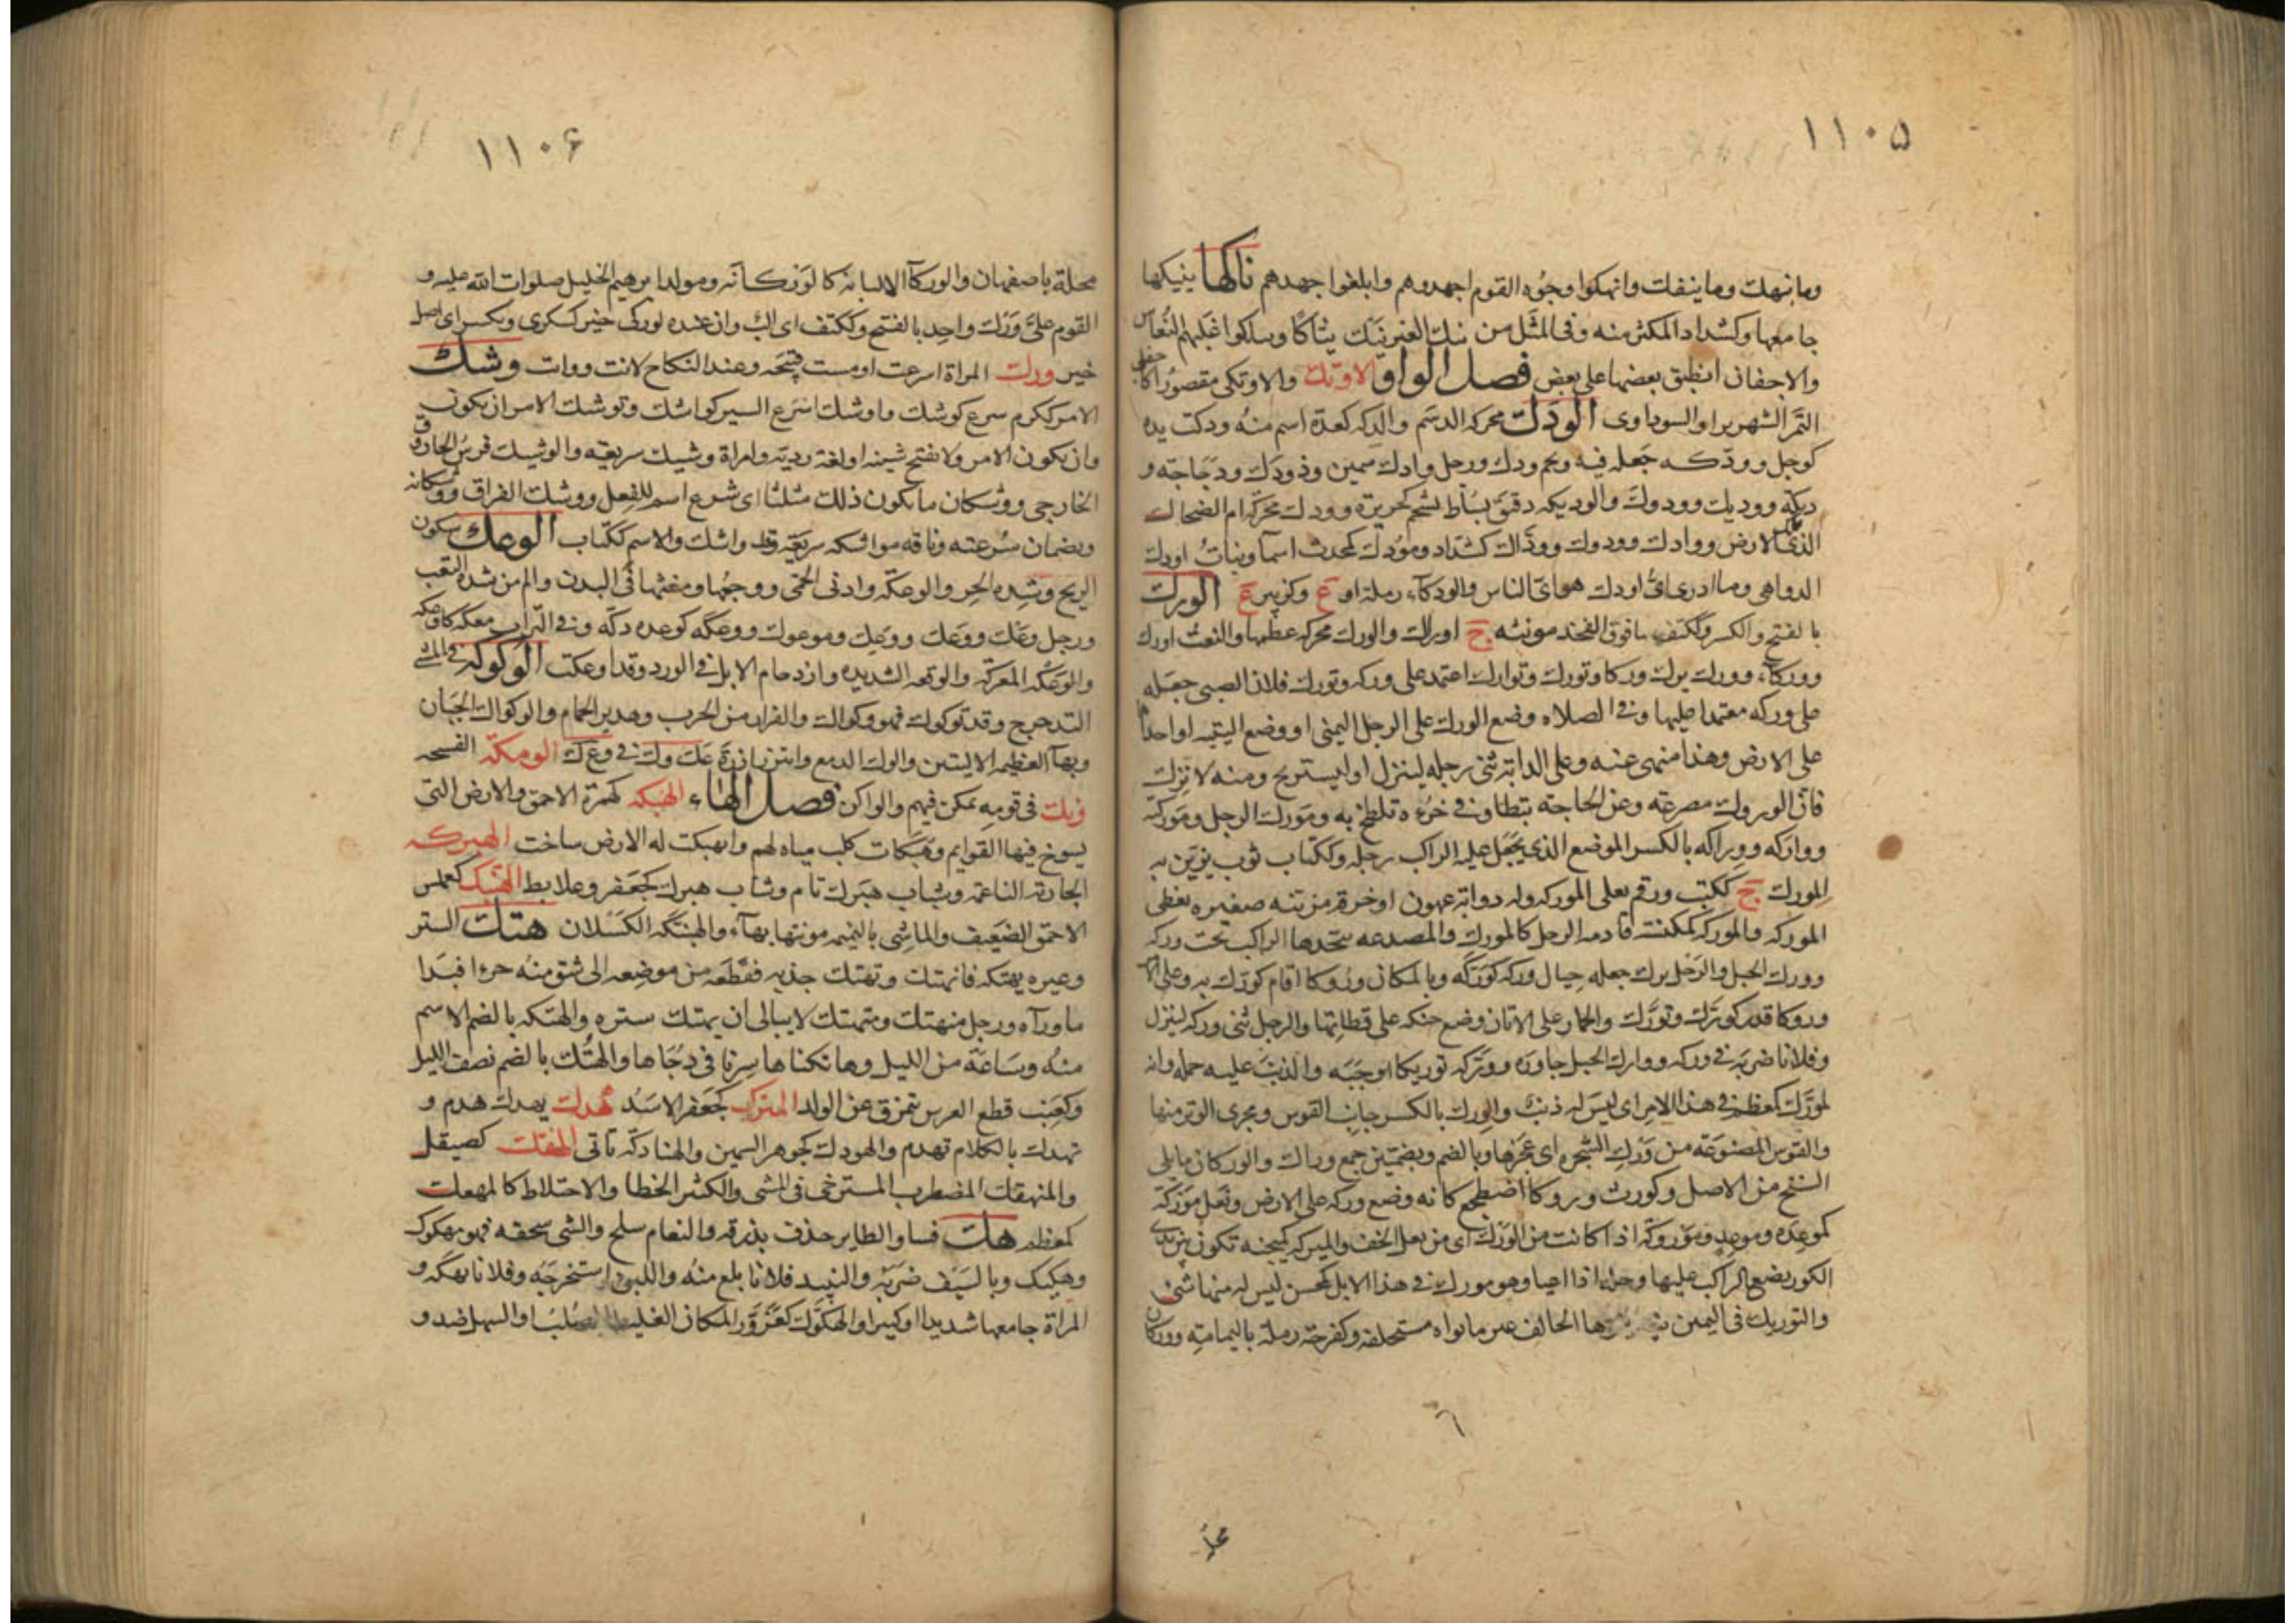 ١١٠۵
وما نهك وما ينفك وانهكوا وجوه القوم اجهدوهم وابلغوا جهدهم ناكها ينيكها
جامعها وكشداد المكثر منه وفى المثل من ينك العير ينك نياكا وتناكوا غلبهم النعاس
والاجفان انطبق بعضها على بعض فصل الواو الاوتك والاوتكى مقصورا كاجفلى
التمر الشهريز او السوداوى الودك محركة الدسم والدكة كعدة اسم منه ودكت يده
كوجل وودكه جعله فيه ولحم ودك ورجل وادك سمين وذو ودك ودجاجة و
ديكة ووديك وودوك والوديكة دقيق يساط بشحم كخزيرة وودك محركة ام الضحاك
الذى ملك الارض ووادك وودوك ووداك كشداد ومودك كمحدث اسما وبنات اودك
الدواهى وما ادرى اى اودك هو اى الناس والودكاء رملة او ع وكزبير ع الورك
بالفتح والكسر وككتف ما فوق الفخذ مونثة ج اوراك والورك محركة عظمها والنعت اورك
ووركاء وورك يرك وركا وتورك وتوارك اعتمد على وركه وتورك فلان الصبى جعله
على وركه معتمدا عليها وفى الصلاة وضع الورك على الرجل اليمنى او وضع اليتيه او احداهما
على الارض وهذا منهى عنه وعلى الدابة ثنى رجله لينزل او ليستريح ومنه لا ترك
فان الوروك مصرعة وعن الحاجة تبطا وفى خرئه تلطخ به ومورك الرجل وموركته
وواركه ووراكه بالكسر الموضع الذى يجعل عليه الراكب رجله وككتاب ثوب يزين به
المورك ج ككتب ورقم يعلى الموركة وله دوابة عهون او خرقة مزينة صغيرة يغطى
الموركة والموركة كمكنسة قادمة الرحل كالمورك والمصدعة يتخذها الراكب تحت وركه
وورك الحبل والرحل يرك جعله حيال وركه كوركه وبالمكان وروكا اقام كورك به وعلى الامر
وروكا قدر كورك وتورك والحمار على الاتان وضع حنكه على قطاتها والرجل ثنى وركه لينزل
وفلانا ضربه فى وركه ووارك الجبل جاوزه ووركه توريكا اوجبه والذنب عليه حمله وانه
لمورك كمعظم فى هذا الامر اى ليس له ذنب والورك بالكسر جانب القوس ومجرى الوتر منها
والقوس المصنوعة من ورك الشجرة اى عجزها وبالضم وبضمتين جمع وراك والوركان ما يلى
السنخ من الاصل وكورث وروكا اضطجع كانه وضع وركه على الارض ونعل موركة
كموعدة وموعد وموروكة اذا كانت من الورك اى من نعل الخف والميركة كميجنة تكون بين يدى
الكور يضع الراكب عليها رجله اذا اعيا وهو مورك فى هذا الابل كمحسن ليس له منها شىء
والتوريك فى اليمين نية ينويها الحالف غير ما نواه مستحلفه وكفرحة رملة باليمامة ووركان
٦
محلة
١١٠۶
محلة باصفهان والوركاء الاليانة كالوركانة ومولد ابرهيم الخليل صلوات الله عليه و
القوم على ورك واحد بالفتح وككتف اى الب وان عنده لوركى خبر كسكرى وبكسر اى اصل
خبر ورك المراة اسرعت او مست قبيحة وعند النكاح لانت وواتت وشك
الامر ككرم سرع كوشك واوشك اسرع السير كواشك وتوشك الامر ان يكون
وان يكون الامر ولا تفتح شينه او لغة ردية وامراة وشيك سريعة والوشيك فرس الحازوق
الخارجى ووشكان ما يكون ذلك مثلثا اى سرع اسم للفعل ووشك الفراق ووشكانه
ويضمان سرعته وناقة مواشكة سريعة وقد واشك والاسم ككتاب الوعك سكون
الريح وشدة الحر والوعكة وادنى الحمى ووجعها ومغثها فى البدن والم من شدة التعب
ورجل وعك ووعك ووعك وموعوك ووعكه كوعده دكه وفى التراب معكه كاوعكه
والوعكة المعركة والوقعة الشديدة وازدحام الابل فى الورد وقد اوعكت الوكوكة فى المشى
التدحرج وقد توكوك فهو وكواك والفرار من الحرب وهدير الحمام والوكواك الجبان
وبهاء العظيمة الاليتين والوك الدمع وائتزر ازرة عك وك فى وع ك الومكة الفسحة
ونك فى قومه تمكن فيهم والواكن فصل الهاء الهبكة كهمزة الاحمق والارض التى
يسوخ فيها القوايم وهبكات كلب مياه لهم وانهبكت له الارض ساخت الهبركة
الجارية الناعمة وشباب هبرك تام وشاب هبرك كجعفر وعلابط الهبنك كعملس
الاحمق الضعيف والماشى بالنميمة مونثها بهاء والهبنكة الكسلان هتك الستر
وغيره يهتكه فانهتك وتهتك جذبه فقطعه من موضعه الى شق منه جزءا فبدا
ما وراءه ورجل منهتك ومتهتك لا يبالى ان يهتك ستره والهتكة بالضم الاسم
منه وساعة من الليل وهاتكناها سرنا فى دجاها والهتك بالضم نصف الليل
وكعنب قطع الغرس تتمزق عن الولد الهترك كجعفر الاسد هدك يهدك هدم و
تهدك بالكلام تهدم والهودك كجوهر السمين والهنادكة تاتى الهفتك كصيقل
والمنهفك المضطرب المسترخى فى المشى والكثير الخطا والاختلاط كالمهفك
كمعظم هك فسا والطاير حذف بذرقه والنعام سلح والشى سحقه فهو مهكوك
وهكيك وبالسيف ضربه والنبيذ فلانا بلغ منه واللبن استخرجه وفلانا نهكه و
المراة جامعها شديدا او كثيرا والهكوك كعزور المكان الغليظ الصلب او السهل ضد و